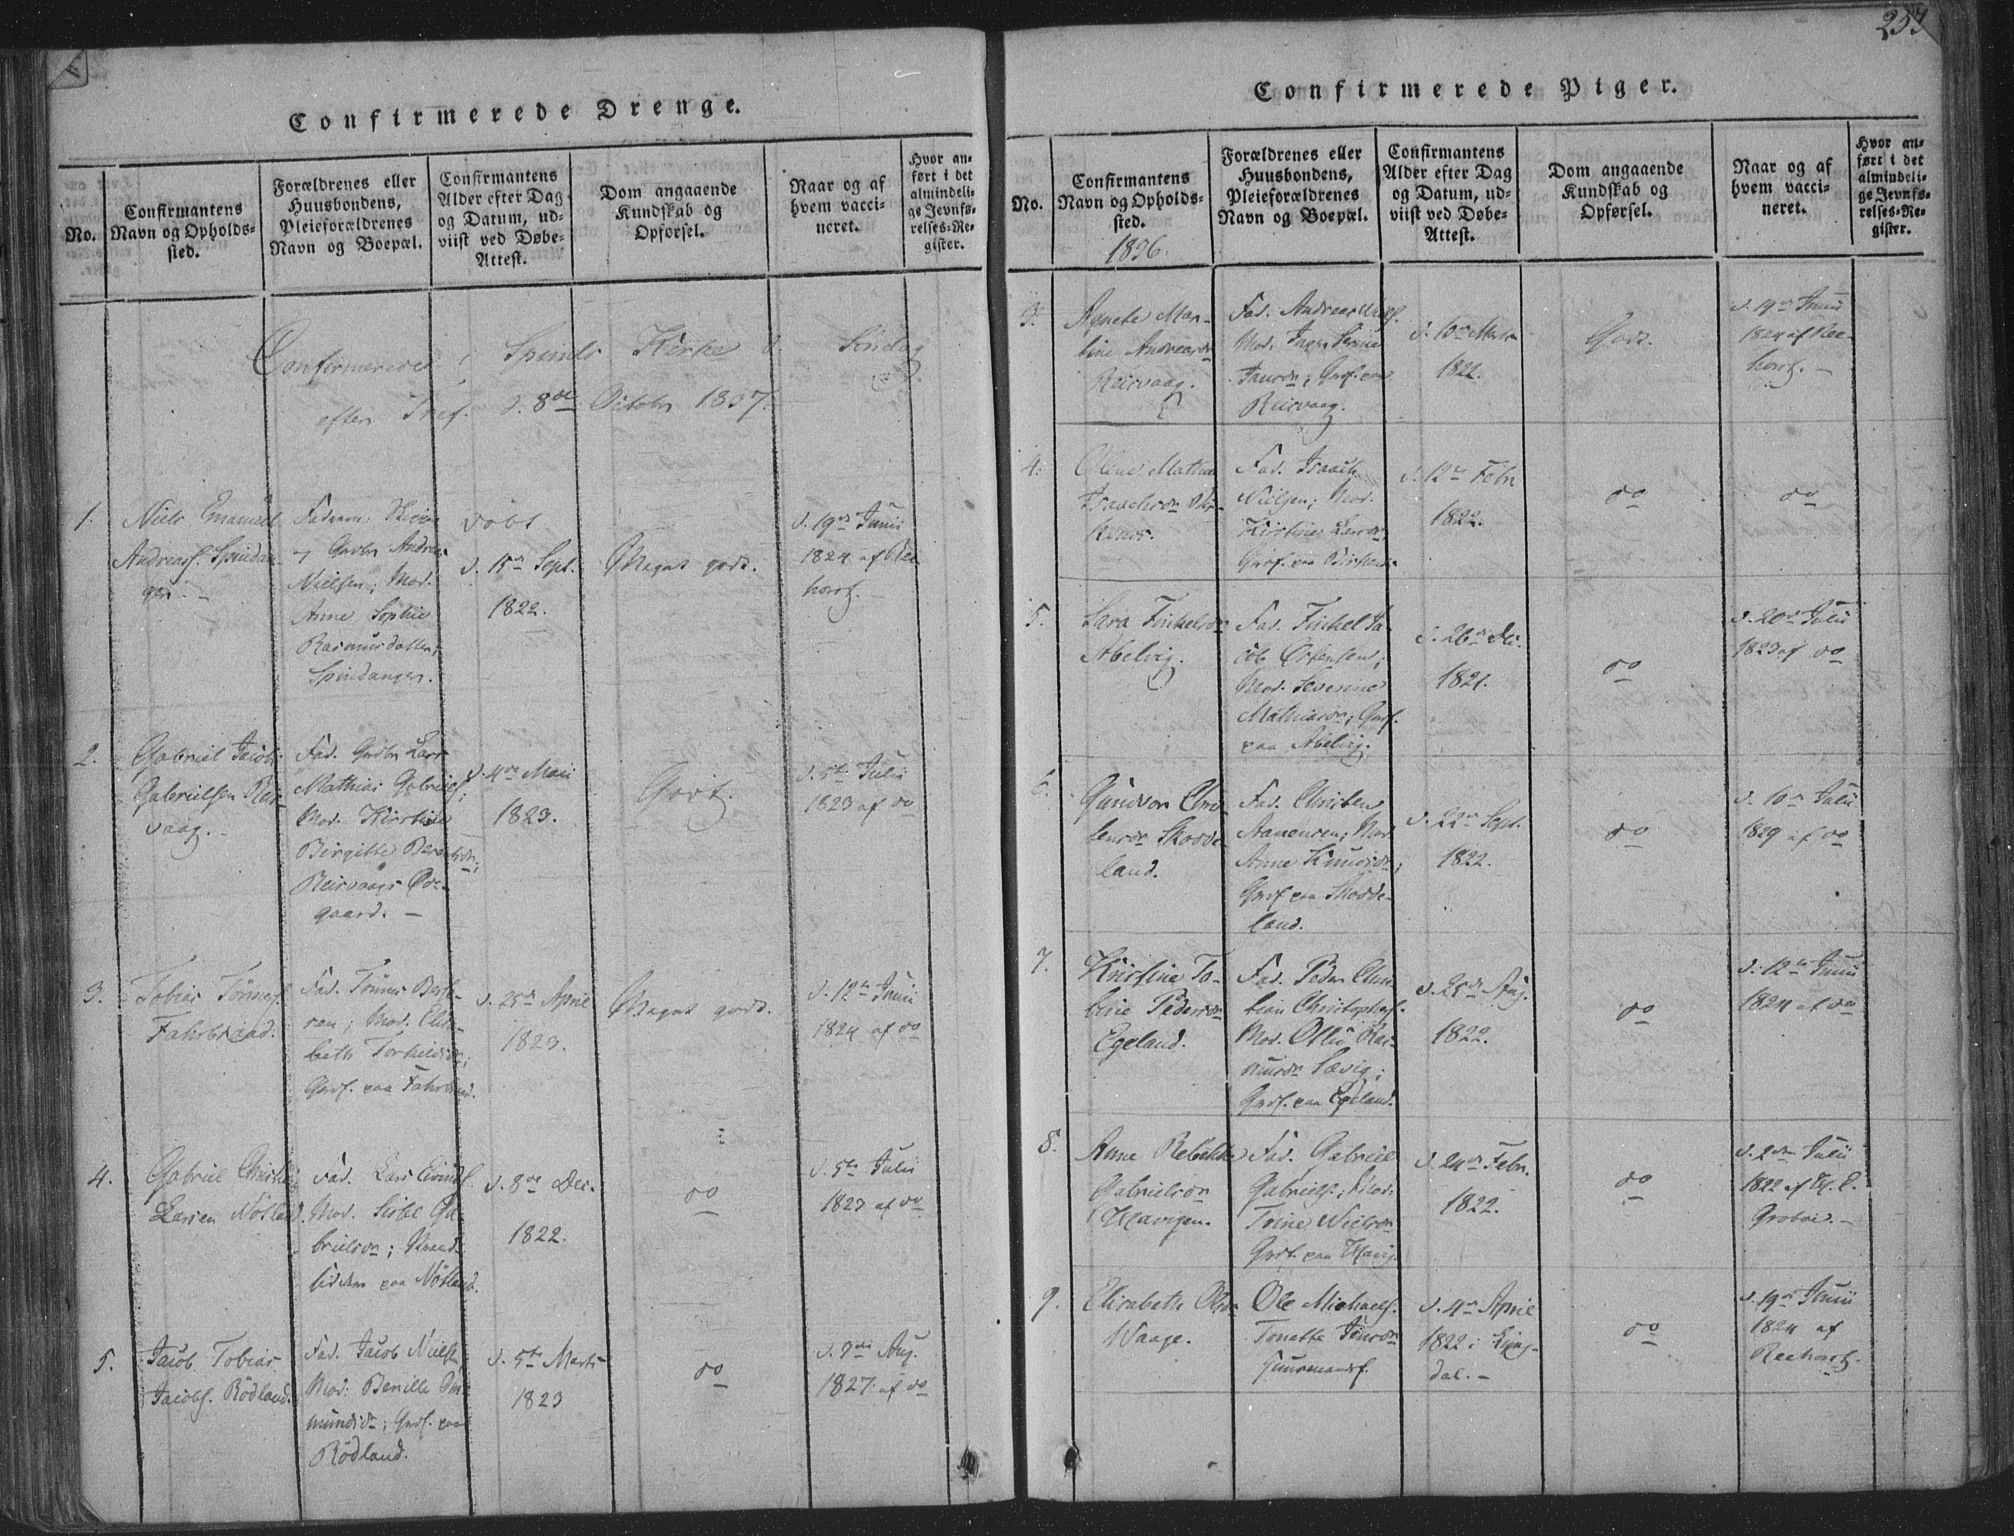 Confirmerede Drenge.
No.
Confirmantens
Navn og Opholds-
sted.
Forældrenes eller
Huusbondens,
Pleieforældrenes
Navn og Boepæl.
Confirmantens
Alder efter Dag
og Datum, ud-
viist ved Døbe-
Attest.
Dom angaaende
Kundskab og
Opførsel.
Naar og af
hvem vacci-
neret.
Hvor an-
ført i det
almindeli-
ge Jevnfø-
relses-Re-
gister.
Confirmerede i Spinds Kirke d. Søndag
efter Tref. d. 8de October 1837.
1.
Niels Emanuel
Andreass. Spindan-
ger. -
Nielsen; Mod.
Anne Sophie
Rasmusdatter;
Spindanger.
døbt
d. 15de Sept.
1822.
Meget godt.
d. 19de Junii
1824 af Ree-
horst.
2.
Gabriel Jacob
Gabrielsen Reis-
vaag. -
Fad. Gaardbr. Lars
Mathias Gabriels.
Mod. Kirstine
Birgitte Berentsdr;
Reisvaag Øde-
gaard. -
d. 4de Maii
1823.
Godt.
d. 5te Julii
1823 af do
3.
Tobias Tönness.
Fahrbraad.
Fad. Tönnes Bers-
Mod. Elis-
beth
Gmf. paa
d. 25de April
1823.
Meget godt.
d. 12te Junii
1824 af do
4.
Gabriel Christian
Larsen Nötland.
Fad. Lars Eivinds.
Mod. Sisbel Ga-
brielsdr; Strand-
sidder paa Nötland.
d. 8de Dec.
1822.
do
d. 5te Julii
1823 af do
5.
Jacob Tobias
Jacobs. Rödland.
Fad. Jacob Niels.
Mod: Benille Aa-
mundsdr; Gmf. paa
Rödland.
d. 5te Marts
1823
do
Aug.
1827 af do
253
Confirmerede Piger.
No.
Confirmantens
Navn og Opholds-
sted.
1836.
Forældrenes eller
Huusbondens,
Pleieforældrenes
Navn og Boepæl.
Confirmantens
Alder efter Dag
og Datum, ud-
viist ved Døbe-
Attest.
Dom angaaende
Kundskab og
Opførsel.
Naar og af
hvem vacci-
neret.
Hvor an-
ført i det
almindeli-
ge Jevnfø-
relses-Re-
gister.
3.
Agnete Mar-
tine Andreasdr
Reisvaag.
Fad. Andreas
Mod. Inger Serine
Gmf. paa
Reisvaag.
d. 10de Marts
1822.
Godt.
d. 19de Junii
1824 af Ree-
horst. -
4.
Oline Mathea
Isaachsdr
Fad. Isaach
Nielsen; Mod.
Kirstine Larsdr
Gmf. paa
d. 12te Febr.
1822.
do
do
5.
Sara Finkelsdr
Abelvig.
Fad. Finkel Ja-
cob Östensen;
Mod. Severine
Mathiasdr; Gmf.
paa Abelvig.
d. 26de De.
1821.
do
d. 20de Julii
1823 af do
6.
Gundvor Chri-
stensdr Skodde-
land.
Fad. Christen
Aanensen; Mod.
Anne Knudsdr;
Gmf. paa Skodde-
land.
d. 22de Sept.
1822.
do
d. 10de Julii
1829 af do
7.
Kirstine To-
bine Pedersdr
Egeland.
Fad. Peder Chri-
stian Christophers.
Mod. Ollu Ras-
musdr Sævig;
Gmf. paa Egeland.
d. 25de Aug.
1822.
do
d. 12te Junii
1824 af do
8.
Anne Rebekke
Gabrielsdr
Havigen.
Fad. Gabriel
Gabriels.; Mod.
Trine Nielsdr
Gmf. paa Havig.
d. 24de Febr.
1822.
do
d. 2den Julii
1822 af
9.
Elisabeth Olsdr
Waage.
Ole Michaels.
Tonette Jensdr
Huusmandsf.
d. 4de April
1822 i
dal. -
do
d. 19de Junii
1824 af
Reehorst.